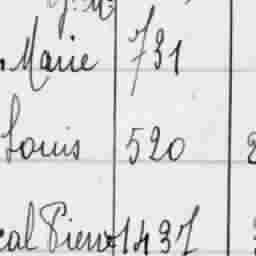 Marie 731
Louis 520
cal Pierre 1437